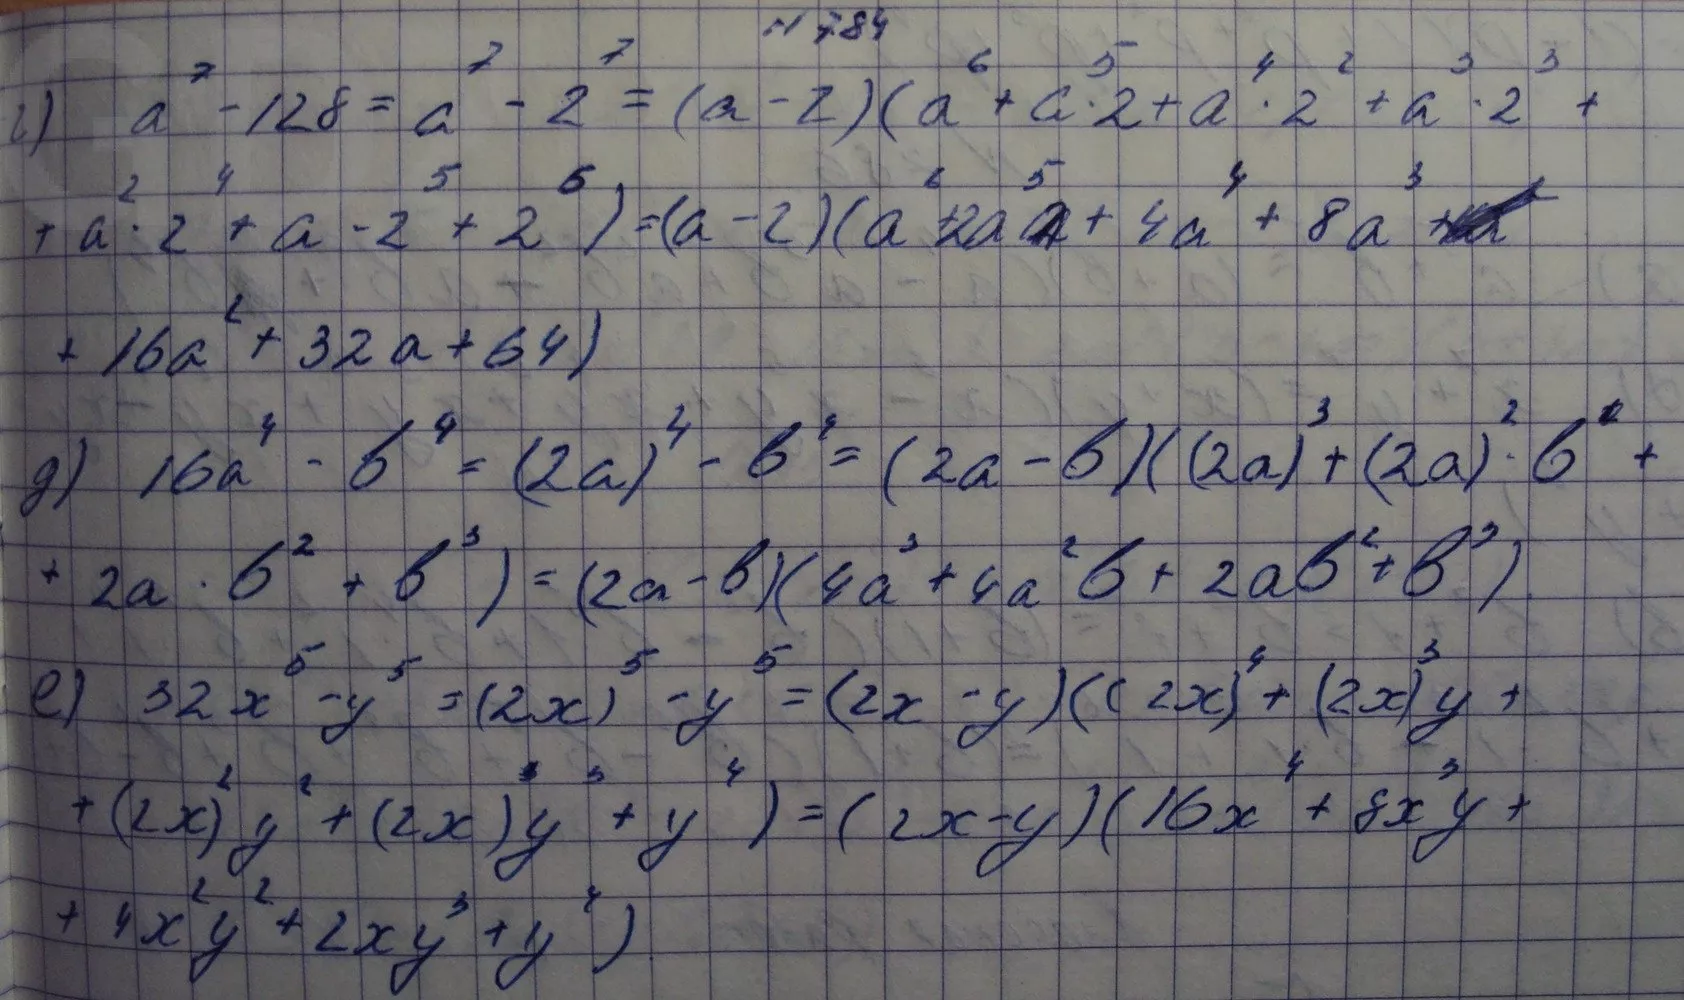 N 784
г) a⁷ - 128 = a⁷ - 2⁷ = (a - 2)(a⁶ + a⁵·2 + a⁴·2² + a³·2³ +
+ a²·2⁴ + a·2⁵ + 2⁶) = (a - 2)(a⁶ + 2a⁵ + 4a⁴ + 8a³ +
+ 16a² + 32a + 64)
д) 16a⁴ - b⁴ = (2a)⁴ - b⁴ = (2a - b)((2a)³ + (2a)²·b +
+ 2a·b² + b³) = (2a - b)(4a³ + 4a²b + 2ab² + b³)
е) 32x⁵ - y⁵ = (2x)⁵ - y⁵ = (2x - y)((2x)⁴ + (2x)³y +
+ (2x)²y² + (2x)y³ + y⁴) = (2x - y)(16x⁴ + 8x³y +
+ 4x²y² + 2xy³ + y⁴)